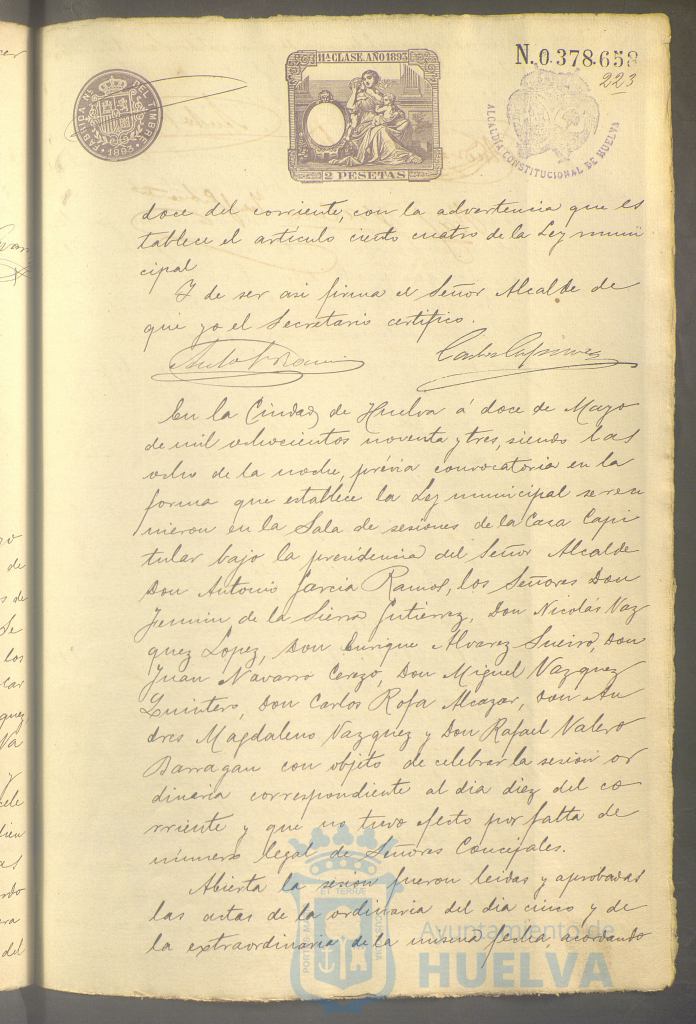 11ª CLASE. AÑO 1893
2 PESETAS
N.0.378.659
223
FABRICA NL. DEL TIMBRE
1893
ALCALDÍA CONSTITUCIONAL DE HUELVA
doce del corriente, con la advertencia que es
tablece el artículo ciento cuatro de la Ley muni
cipal
Y de ser asi firma el Señor Alcalde de
que yo el Secretario certifico.
En la Ciudad de Huelva á doce de Mayo
de mil ochocientos noventa y tres, siendo las
ocho de la noche, prévia convocatoria en la
forma que establece la Ley municipal se reu
nieron en la Sala de sesiones de la Casa Capi
tular bajo la presidencia del Señor Alcalde
Don Antonio Garcia Ramos, los Señores Don
Fermin de la Sierra Gutierrez, Don Nicolás Vaz
quez Lopez, Don Enrique Alvarez Sueiro, Don
Juan Navarro Cerezo, Don Miguel Vazquez
Quintero, Don Carlos Rofa Alcazar, Don An
dres Magdaleno Vazquez y Don Rafael Valero
Barragan con objeto de celebrar la sesion or
dinaria correspondiente al dia diez del co
rriente y que no tuvo efecto por falta de
número legal de Señores Concejales.
Abierta la sesion fueron leidas y aprobadas
las actas de la ordinaria del dia cinco y de
la extraordinaria de la misma fecha, acordando
Ayuntamiento de
HUELVA